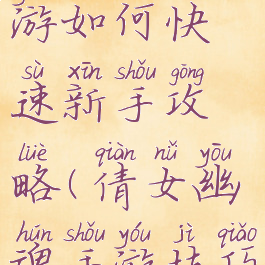 游如何快
sù xīn shǒu gōng
速新手攻
lüè qiàn nǚ yōu
略(倩女幽
hún shǒu yóu jì qiǎo
魂手游技巧